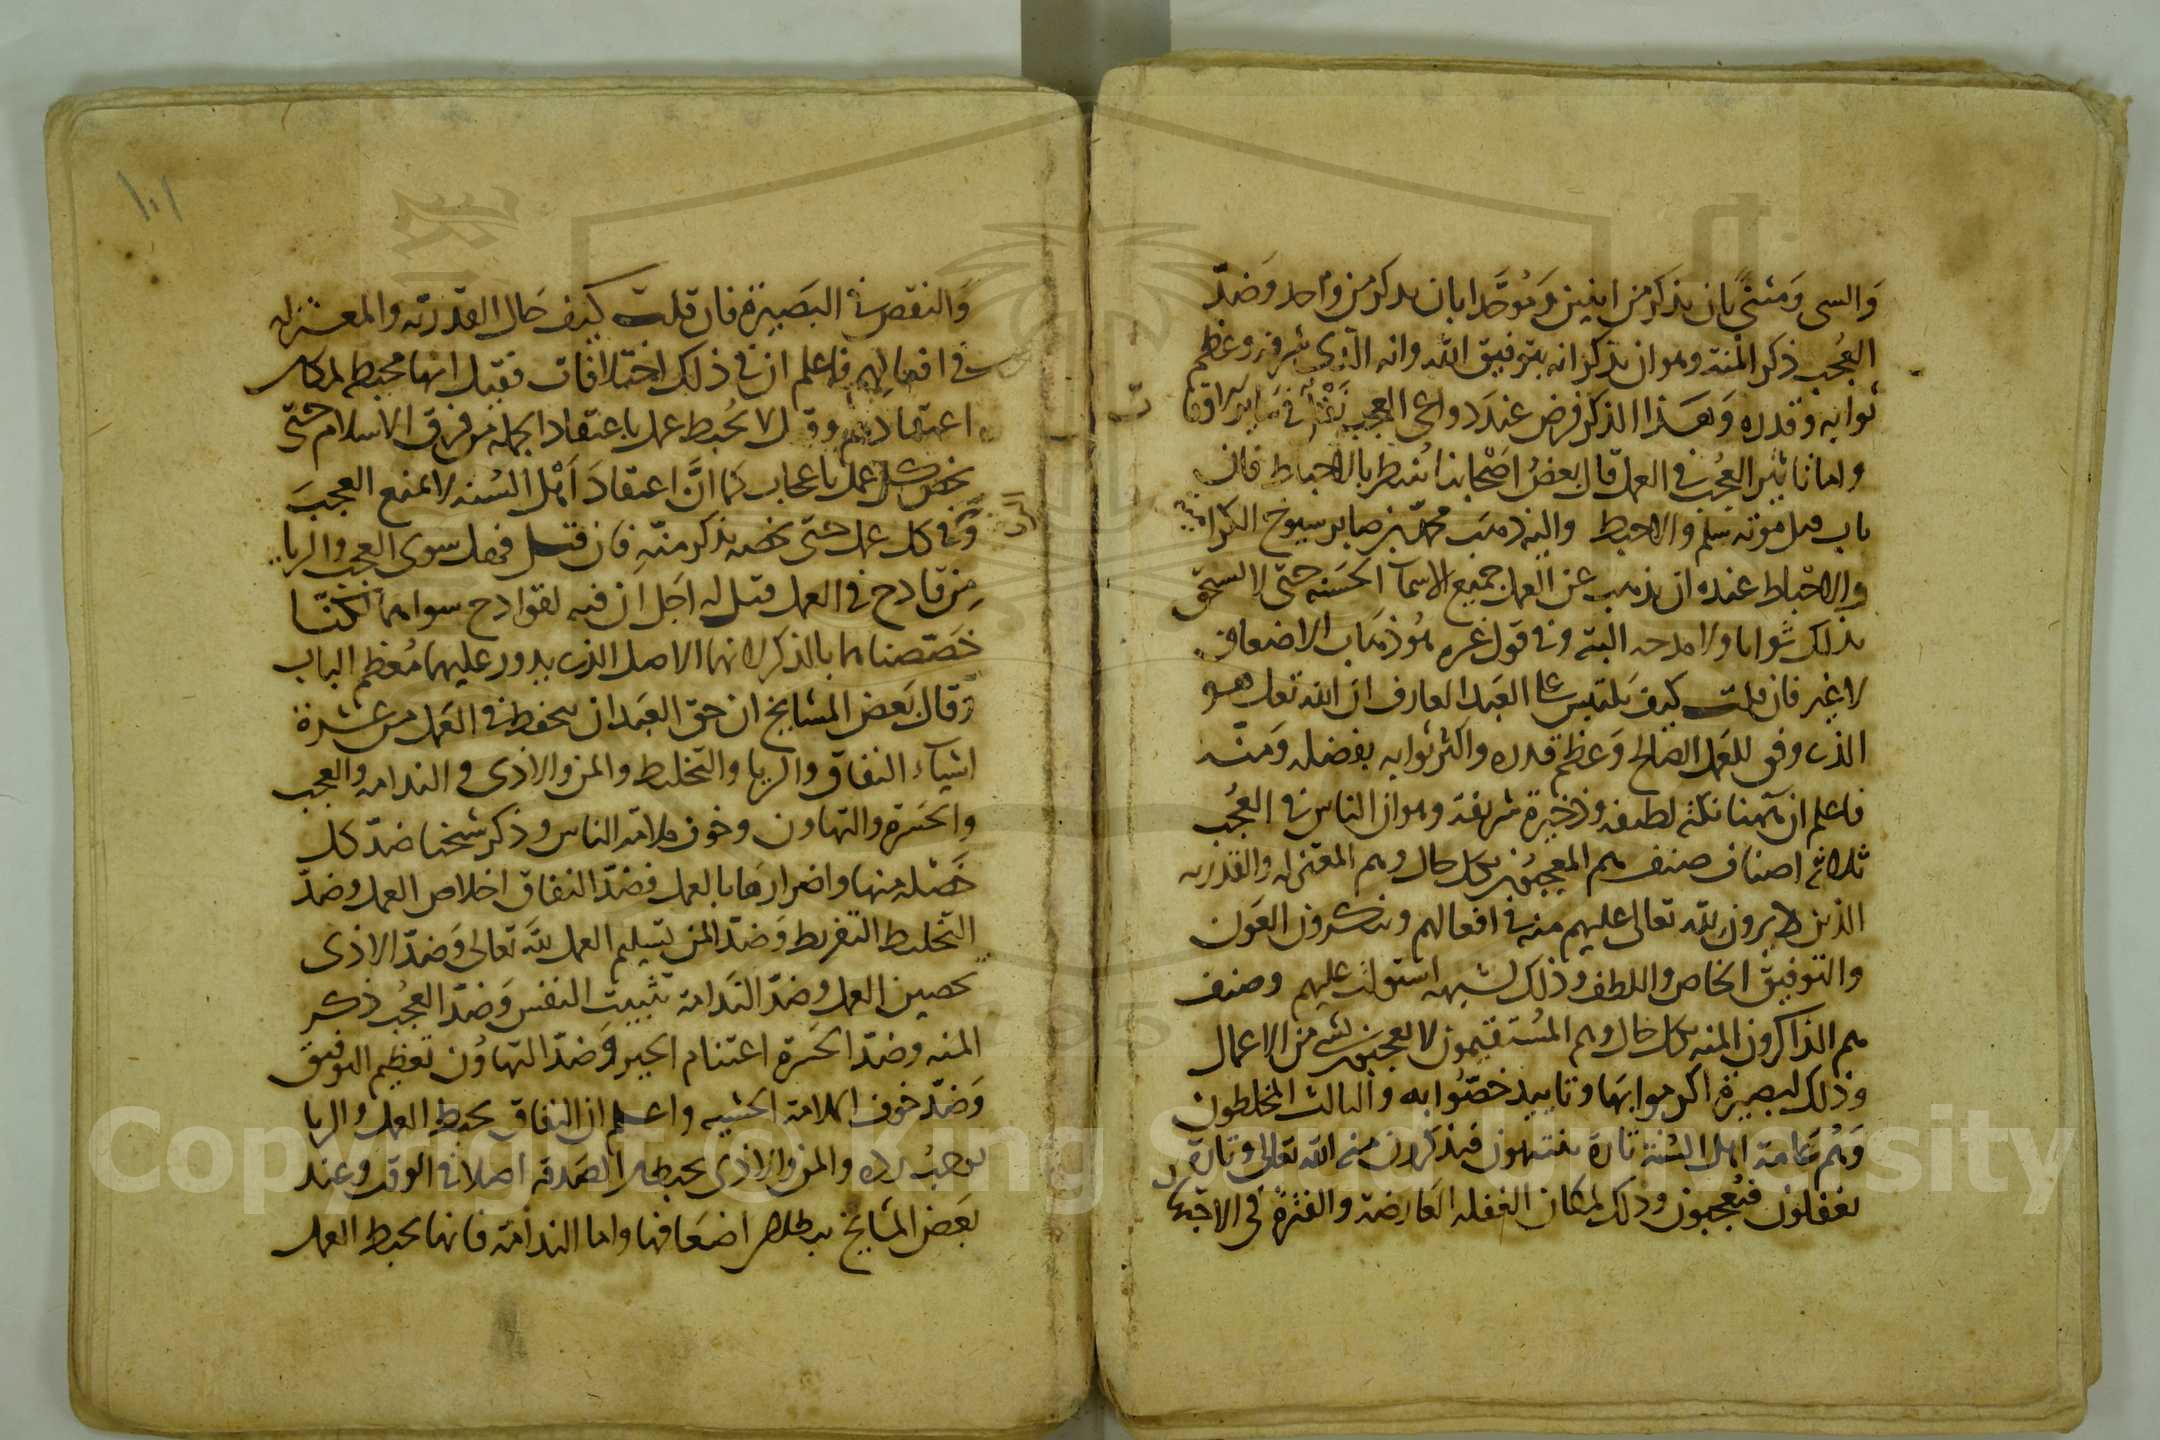 والسى ومثنى بان يذكر من اثنين وموحدا بان يذكر من واحد وضد
العجب ذكر المنة وهو ان يذكر انه بتوفيق الله وانه الذي شرفه وعظم
ثوابه وقدره وهذا الذكر فرض عند دواعى العجب نفل فى سائر الاوقات
واما تاثير العجب فى العمل قال بعض اصحابنا ينتظر بالاحباط فان
تاب قبل موته سلم والا احبط واليه ذهب محمد بن صابر من شيوخ الكرامية
والاحباط عنده ان يذهب عن العمل جميع الاسما الحسنه حتى لا يستحق
بذلك ثوابا ولا مدحه البتة وفى قول غيره هو ذهاب الاضعاف
لا غير فان قلت كيف يلتبس على العبد العارف ان الله تعالى هو
الذى وفق للعمل الصالح وعظم قدره واكثر ثوابه بفضله ومنه
فاعلم ان ههنا نكتة لطيفه وذخيرة شريفة وهو ان الناس فى العجب
ثلاثة اصناف صنف هم المعجبون بكل حال وهم المعتزله والقدريه
الذين لا يرون لله تعالى عليهم منه فى افعالهم وينكرون العون
والتوفيق الخاص واللطف وذلك لشبهه استولت عليهم وصنف
هم الذاكرون المنه بكل حال وهم المستقيمون لا يعجبون بشى من الاعمال
وذلك لبصيرة اكرموا بها وتاييد خصوا به والثالث المخلطون
وهم عامة اهل السنة تارة ينتبهون فيذكرون منه الله تعالى وتارة
يغفلون فيعجبون وذلك لمكان الغفله العارضة والفترة فى الاجتهاد
١٠١
والنقص فى البصيرة فان قلت كيف حال القدرية والمعتزله
فى افعالهم فاعلم ان فى ذلك اختلافات فقيل انها محبط لمكان
اعتقادهم وقيل لا يحبط عمل باعتقاد الجمله من فرق الاسلام حتى
يخص كل عمل باعجاب كما ان اعتقاد اهل السنه لا يمنع العجب
فى كل عمل حتى يخصه بذكر منه فان قيل فهل سوى العجب والريا
من قادح فى العمل قيل له اجل ان فيه لقوادح سواهما لكننا
خصصناهما بالذكر لانهما الاصل الذى يدور عليهما معظم الباب
وقال بعض المشايخ ان حق العبد ان يحفظ فى العمل من عشرة
اشياء النفاق والريا والتخليط والمن والاذى و الندامه والعجب
والحسرة والتهاون وخوف ملامة الناس وذكر شيخنا ضد كل
خصله منها واضرارها بالعمل فضد النفاق اخلاص العمل وضد
التخليط التفريط وضد المن تسليم العمل لله تعالى وضد الاذى
تحصين العمل وضد الندامة تثبيت النفس وضد العجب ذكر
المنه وضد الحسرة اغتنام الخير وضد التهاون تعظيم التوفيق
وضد خوف الملامة الخشيه واعلم ان النفاق يحبط العمل والريا
يوجب رده والمن والاذى يحبطان الصدقة اصلا فى الوقت وعند
بعض المشايخ يبطلان اضعافها واما الندامة فانها تحبط العمل
Copyright © King Saud University